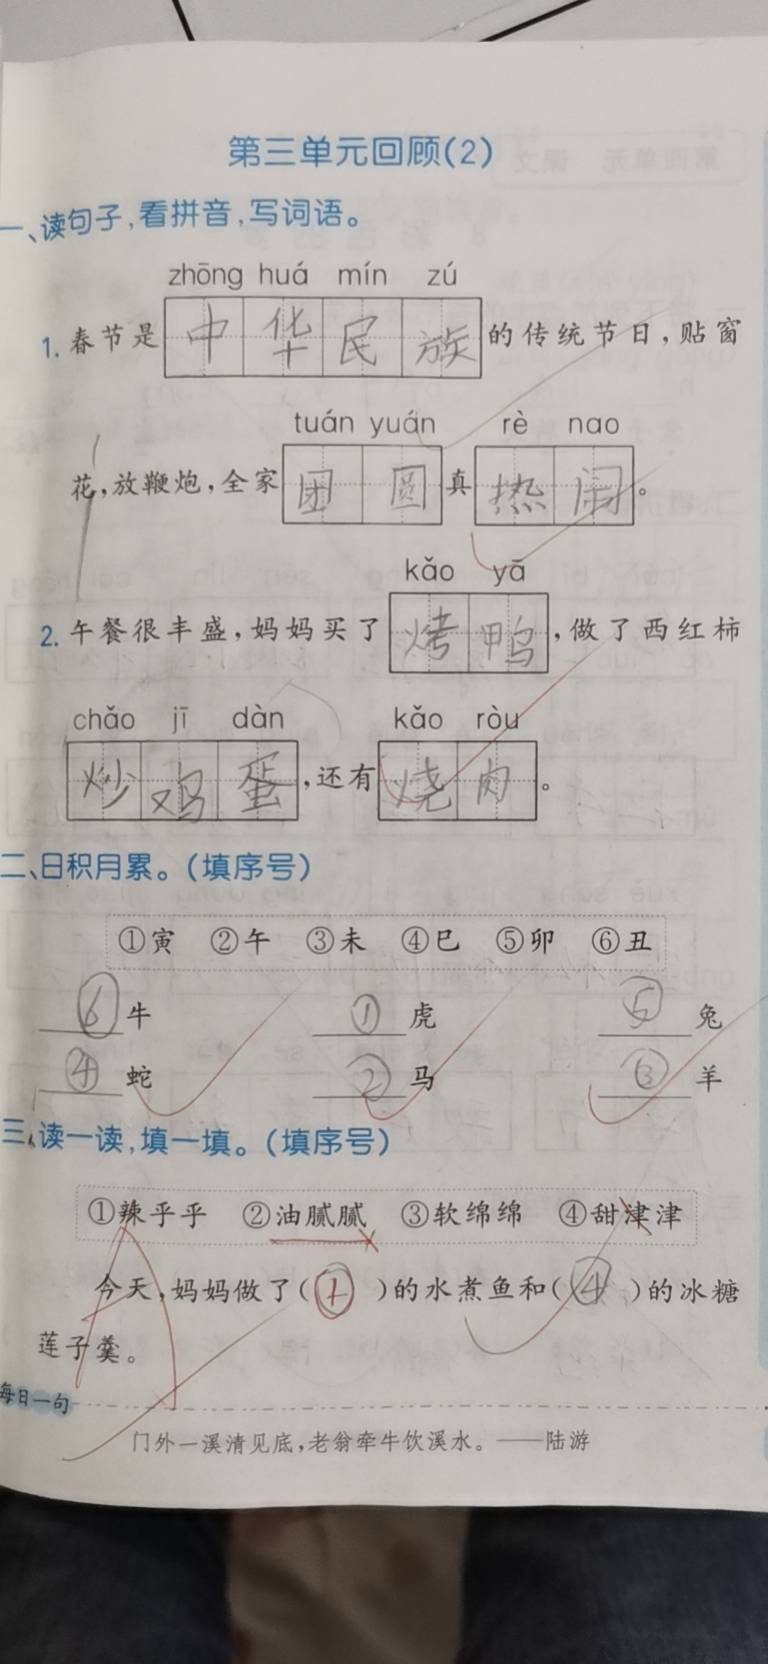 第三单元回顾(2)
一、读句子,看拼音,写词语。
zhōng huá mín zú
1. 春节是中华民族的传统节日,贴窗
tuán yuán rè nao
花,放鞭炮,全家团圆真热闹。
kǎo yā
2. 午餐很丰盛,妈妈买了烤鸭,做了西红柿
chǎo jī dàn kǎo ròu
炒鸡蛋,还有烧肉。
二、日积月累。(填序号)
①寅 ②午 ③未 ④巳 ⑤卯 ⑥丑
⑥牛 ①虎 ⑤兔
④蛇 ②马 ③羊
三、读一读,填一填。(填序号)
①辣乎乎 ②油腻腻 ③软绵绵 ④甜津津
今天,妈妈做了(①)的水煮鱼和(④)的冰糖
莲子羹。
每日一句
门外一溪清见底,老翁牵牛饮溪水。——陆游